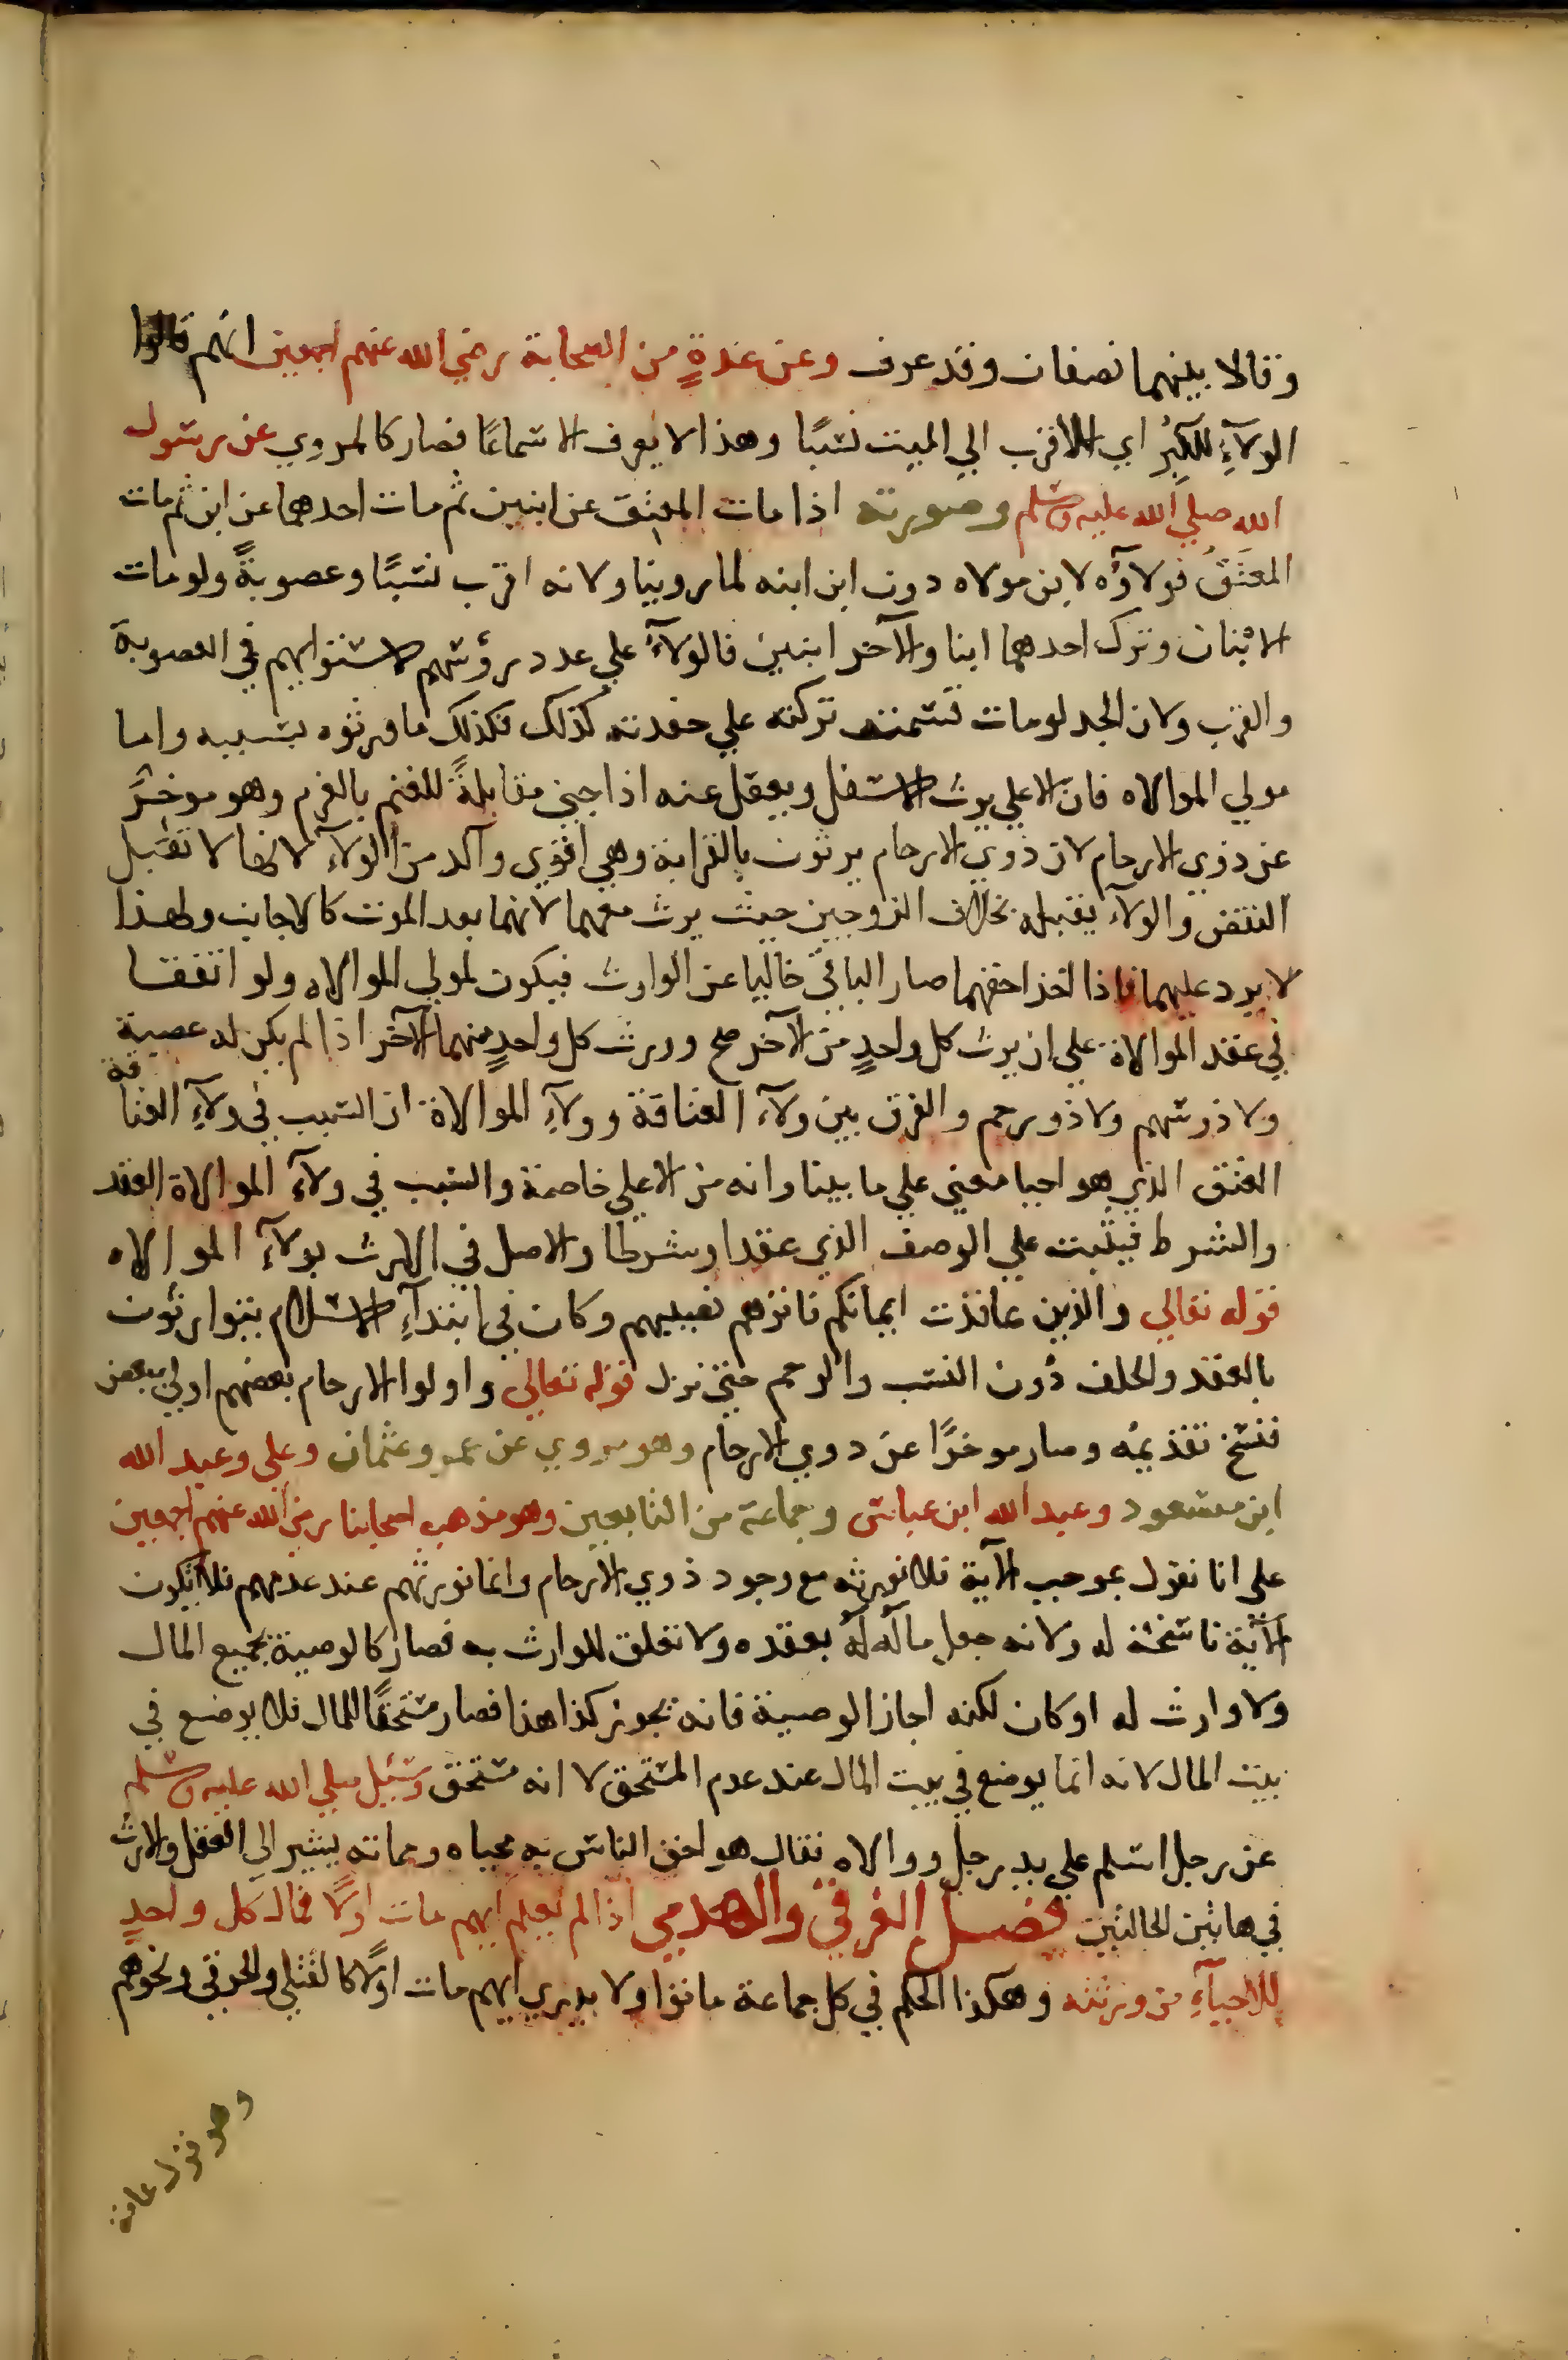 وقالا بينهما نصفان وقد عرف وعن عدةٍ من الصحابة رضي الله عنهم اجمعين انهم قالوا
الولآءِ للكِبَرِ اي الاقرب الي الميت نسبًا وهذا لا يعرف الا سماعًا فصار كالمروي عن رسول
الله صلي الله عليه وسلم وصورته اذا مات المعتِق عن ابنين ثم مات احدهما عن ابن ثم مات
المعتَقُ فولآؤه لابن مولاه دون ابن ابنه لما روينا ولانه اقرب نسبًا وعصوبةً ولو مات
الابنان وترك احدهما ابنا والآخر ابنين فالولآءُ علي عدد رؤسهم لاستوايهم في العصوبة
والقرب ولان الجد لو مات قسمت تركته علي حفدته كذلك فكذلك ما ورثوه بسببه واما
مولي الموالاه فان الاعلي يرث الاسفل ويعقل عنه اذا جني مقابلةً للغنم بالغرم وهو موخرٌ
عن ذوي الارحام لان ذوي الارحام يرثون بالقرابة وهي اقوي وآكد من الولآءِ لانها لا تقبل
النقض والولآء يقبله بخلاف الزوجين حيث يرث معهما لانهما بعد الموت كالاجانب ولهذا
لا يرد عليهما فاذا اخذا حقهما صار الباقي خاليا عن الوارث فيكون لمولي الموالاه ولو اتفقا
في عقد الموالاة علي ان يرث كل واحدٍ من الآخر صح وورث كل واحدٍ منهما الآخر اذا لم يكن له عصبة
ولا ذو سهم ولا ذو رحم والفرق بين ولآء العتاقة وولآءِ الموالاة ان السبب في ولآءِ العتاقة
العتق الذي هو احيا معني علي ما بينا وانه من الاعلي خاصة والسبب في ولآءِ الموالاة العقد
والشرط فيثبت علي الوصف الذي عقدا وشرطا والاصل في الارث بولآءِ الموالاه
قوله تعالي والذين عاقدت ايمانكم فاتوهم نصيبهم وكان في ابتدآءِ الاسلام يتوارثون
بالعقد والحلف دون النسب والرحم حتي نزل قوله تعالي واولوا الارحام بعضهم اولي ببعض
فنسخ تقديمُه وصار موخرًا عن ذوي الارحام وهو مروي عن عمر وعثمان وعلي وعبد الله
ابن مسعود وعبد الله ابن عباس وجماعة من التابعين وهو مذهب اصحابنا رضي الله عنهم اجمعين
علي انا نقول بموجب الآية فلا نورثه مع وجود ذوي الارحام وانما نورثهم عند عدمهم فلا تكون
الآية ناسخة له ولانه جعل مالَه لهُ بعقده ولا تعلق للوارث به فصار كالوصية بجميع المال
ولا وارث له او كان لكنه اجاز الوصية فانه يجوز كذا هذا فصار مستحقًا للمال فلا يوضع في
بيت المال لانه انما يوضع في بيت المال عند عدم المستحق لا انه مستحق وسئل صلي الله عليه وسلم
عن رجل اسلم علي يد رجل ووالاه فقال هو احق الناس به محياه ومماته يشير الي العقل والارث
في هاتين الحالتين فصل الغرقي والهدمي اذا لم يعلم ايهم مات اولًا فمال كل واحدٍ
للاحيآءِ من ورثته وهكذا الحكم في كل جماعة ماتوا ولا يدري ايهم مات اولًا كالقتلي والحرقي ونحوهم
وهو قول عامة